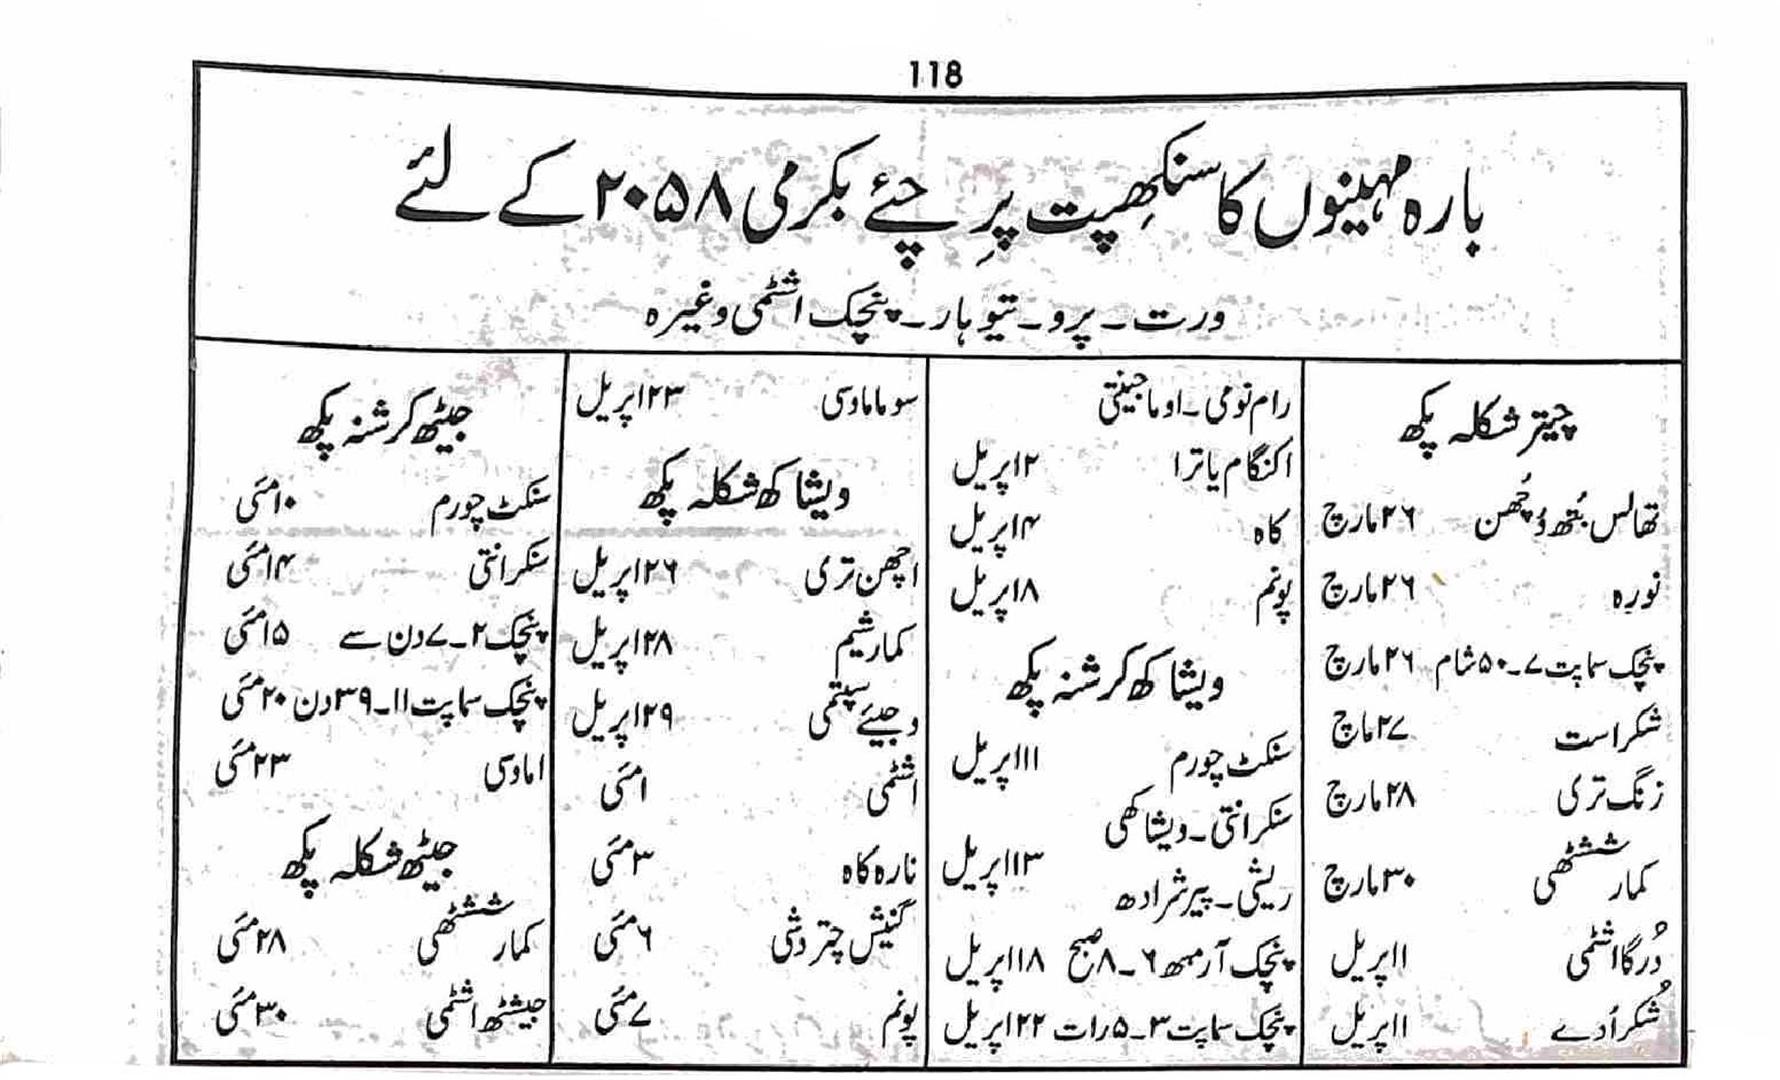 118
بارہ مہینوں کا سنکھپت پرِچئے بکرمی ۲۰۵۸ کے لئے
ورت۔ پرو۔ تیوہار۔ پنچک اشٹمی وغیرہ
چیتر شکلہ پکھ
تھالس بُتھ وُچھن ۲۶ مارچ
نورہ ۲۶ مارچ
پنچک سماپت ۷۔۵۰ شام ۲۶ مارچ
شکراست ۲۷ ماچ
زنگ تری ۲۸ مارچ
کمار ششٹھی ۳۰ مارچ
دُرگا اشٹمی ۱ اپریل
شُکر اُدے ۱ اپریل
رام نومی۔ اوما جینتی
اکنگام یاترا ۲ اپریل
کاہ ۴ اپریل
پونم ۸ اپریل
ویشاکھ کرشنہ پکھ
سنکٹ چورم ۱۱ اپریل
سنکرانتی۔ ویشاکھی
ریشی۔ پیر شرادھ ۱۳ اپریل
پنچک آرمبھ ۶۔۸ صبح ۱۸ اپریل
پنچک سماپت ۳۔۵ رات ۲۲ اپریل
سوماماوسی ۲۳ اپریل
ویشاکھ شکلہ پکھ
اچھن تری ۲۶ اپریل
کمار شیم ۲۸ اپریل
وجیئے سپتمی ۲۹ اپریل
اشٹمی ۱ مئی
نارہ کاہ ۳ مئی
گنیش چتر دشی ۶ مئی
پونم ۷ مئی
جیٹھ کرشنہ پکھ
سنکٹ چورم ۱۰ مئی
سنکرانتی ۱۴ مئی
پنچک ۲۔۷ دن سے ۱۵ مئی
پنچک سماپت ۱۱۔۳۹ دن ۲۰ مئی
اماوسی ۲۳ مئی
جیٹھ شکلہ پکھ
کمار ششٹھی ۲۸ مئی
جیشٹھ اشٹمی ۳۰ مئی